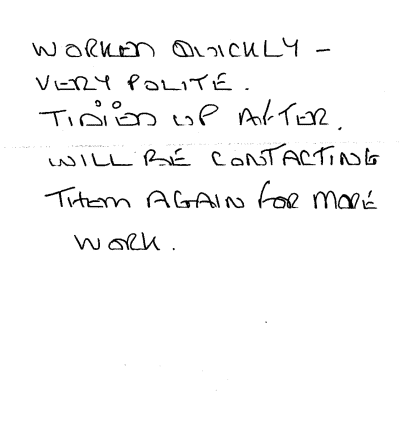 WORKED QUICKLY -
VERY POLITE.
TIDIED UP AFTER.
WILL BE CONTACTING
THEM AGAIN FOR MORE
WORK.